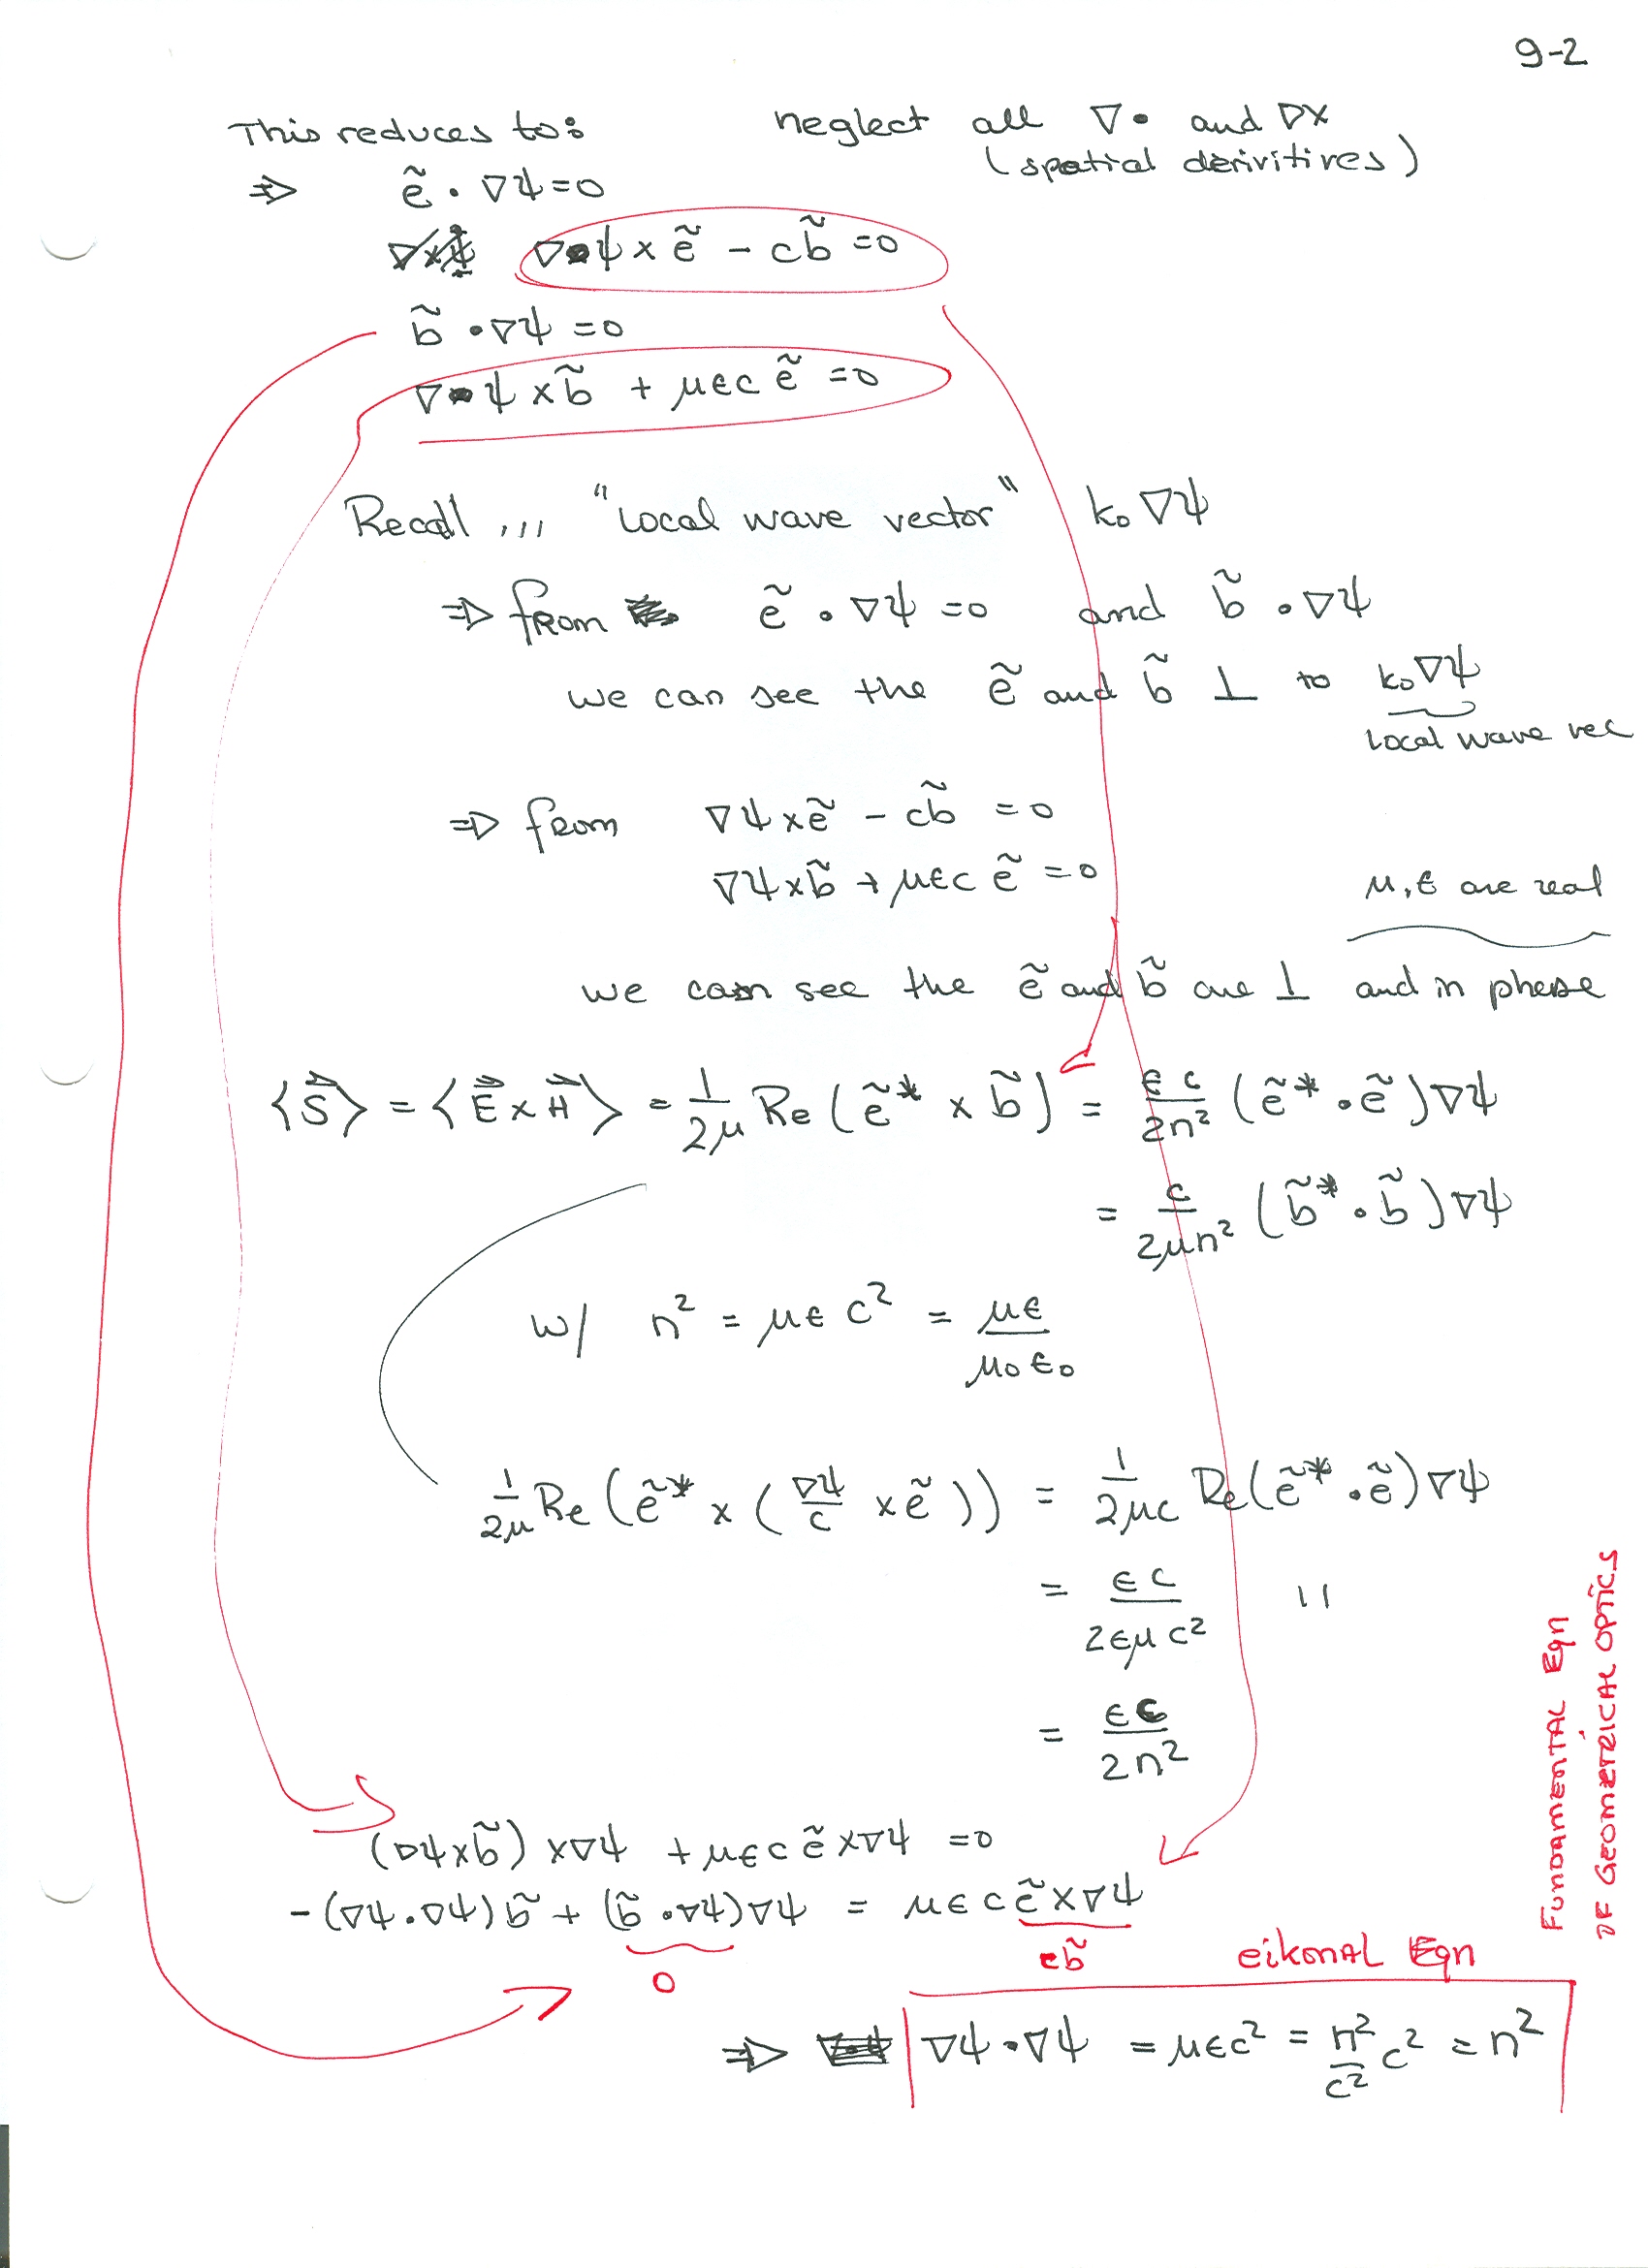 9-2
This reduces to: neglect all ∇• and ∇×
(spatial derivitives)
⇒ ẽ · ∇ψ = 0
∇ψ × ẽ - cb̃ = 0
b̃ · ∇ψ = 0
∇ψ × b̃ + μϵc ẽ = 0
Recall ,,, "Local wave vector" k₀∇ψ
⇒ from ẽ · ∇ψ = 0 and b̃ · ∇ψ
we can see the ẽ and b̃ ⊥ to k₀∇ψ
Local wave vec
⇒ from ∇ψ × ẽ - cb̃ = 0
∇ψ × b̃ + μϵc ẽ = 0
μ, ϵ are real
we can see the ẽ and b̃ are ⊥ and in phase
⟨S⃗⟩ = ⟨E⃗ × H⃗⟩ = 1/2μ Re(ẽ* × b̃) = ϵc/2n² (ẽ* · ẽ)∇ψ
= c/2μn² (b̃* · b̃)∇ψ
w/ n² = μϵc² = μϵ/μ₀ϵ₀
1/2μ Re(ẽ* × (∇ψ/c × ẽ)) = 1/2μc Re(ẽ* · ẽ)∇ψ
= ϵc/2ϵμc² 11
= ϵc/2n²
(∇ψ × b̃) × ∇ψ + μϵc ẽ × ∇ψ = 0
-(∇ψ · ∇ψ)b̃ + (b̃ · ∇ψ)∇ψ = μϵc ẽ × ∇ψ
0 cb̃
eikonal Eqn
⇒ ∇ψ · ∇ψ = μϵc² = n²/c² c² = n²
Fundamental Eqn
of Geometrical Optics